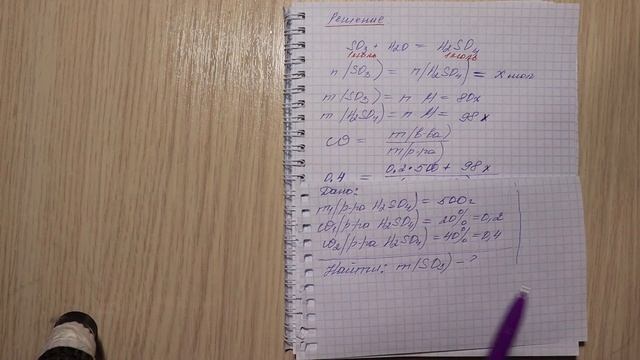 Решение
SO3 + H2O = H2SO4
1моль 1моль
n(SO3) = n(H2SO4) = x моль
m(SO3) = n M = 80x
m(H2SO4) = n M = 98x
ω = m(в-ва)
m(р-ра)
0.4 = 0.2•500 + 98x
Дано:
m1(р-ра H2SO4) = 500г
ω1(р-ра H2SO4) = 20% = 0,2
ω2(р-ра H2SO4) = 40% = 0,4
Найти: m(SO3) - ?